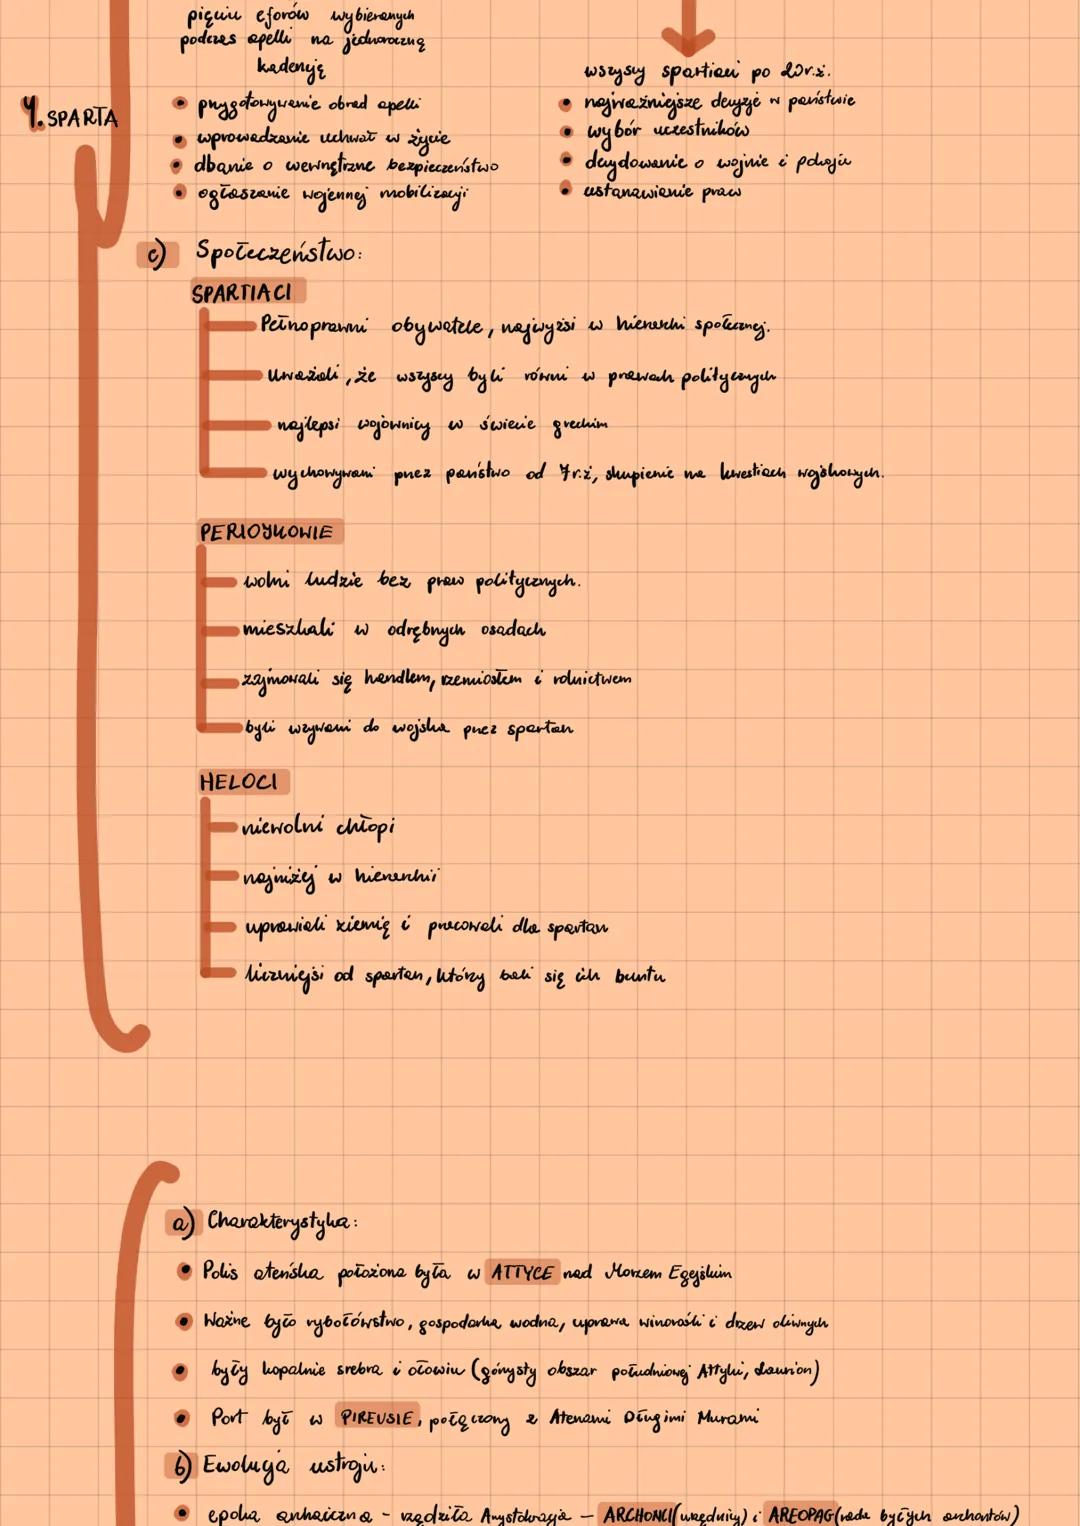 pięciu eforów wybieranych
podczas apelli na jednoroczną
kadencję
wszyscy spartiaci po 20r.ż.
4. SPARTA
• przygotowywanie obrad apelli
• wprowadzanie uchwał w życie
• dbanie o wewnętrzne bezpieczeństwo
• ogłaszanie wojennej mobilizacji
• najważniejsze decyzje w państwie
• wybór uczestników
• decydowanie o wojnie i pokoju
• ustanawianie praw
c) Społeczeństwo:
SPARTIACI
Pełnoprawni obywatele, najwyżsi w hierarchi społecznej.
Uważali, że wszyscy byli równi w prawach politycznych
najlepsi wojownicy w świecie greckim
wychowywani przez państwo od 7r.ż, skupienie na kwestiach wojskowych.
PERIOJKOWIE
wolni ludzie bez praw politycznych.
mieszkali w odrębnych osadach
zajmowali się handlem, rzemiosłem i rolnictwem
byli wzywani do wojska przez spartan
HELOCI
niewolni chłopi
najniżej w hierarchii
uprawiali ziemię i pracowali dla spartan
liczniejsi od spartan, którzy bali się ich buntu
a) Charakterystyka:
• Polis ateńska położona była w ATTYCE nad Morzem Egejskim
• Ważne było rybołówstwo, gospodarka wodna, uprawa winorośli i drzew oliwnych
• były kopalnie srebra i ołowiu (górzysty obszar południowej Attyki, Laurion)
• Port był w PIREUSIE, połączony z Atenami Długimi Murami
b) Ewolucja ustroju:
• epoka archaiczna - rządziła Arystokracja - ARCHONCI (urzędnicy) i AREOPAG (rada byłych archontów)